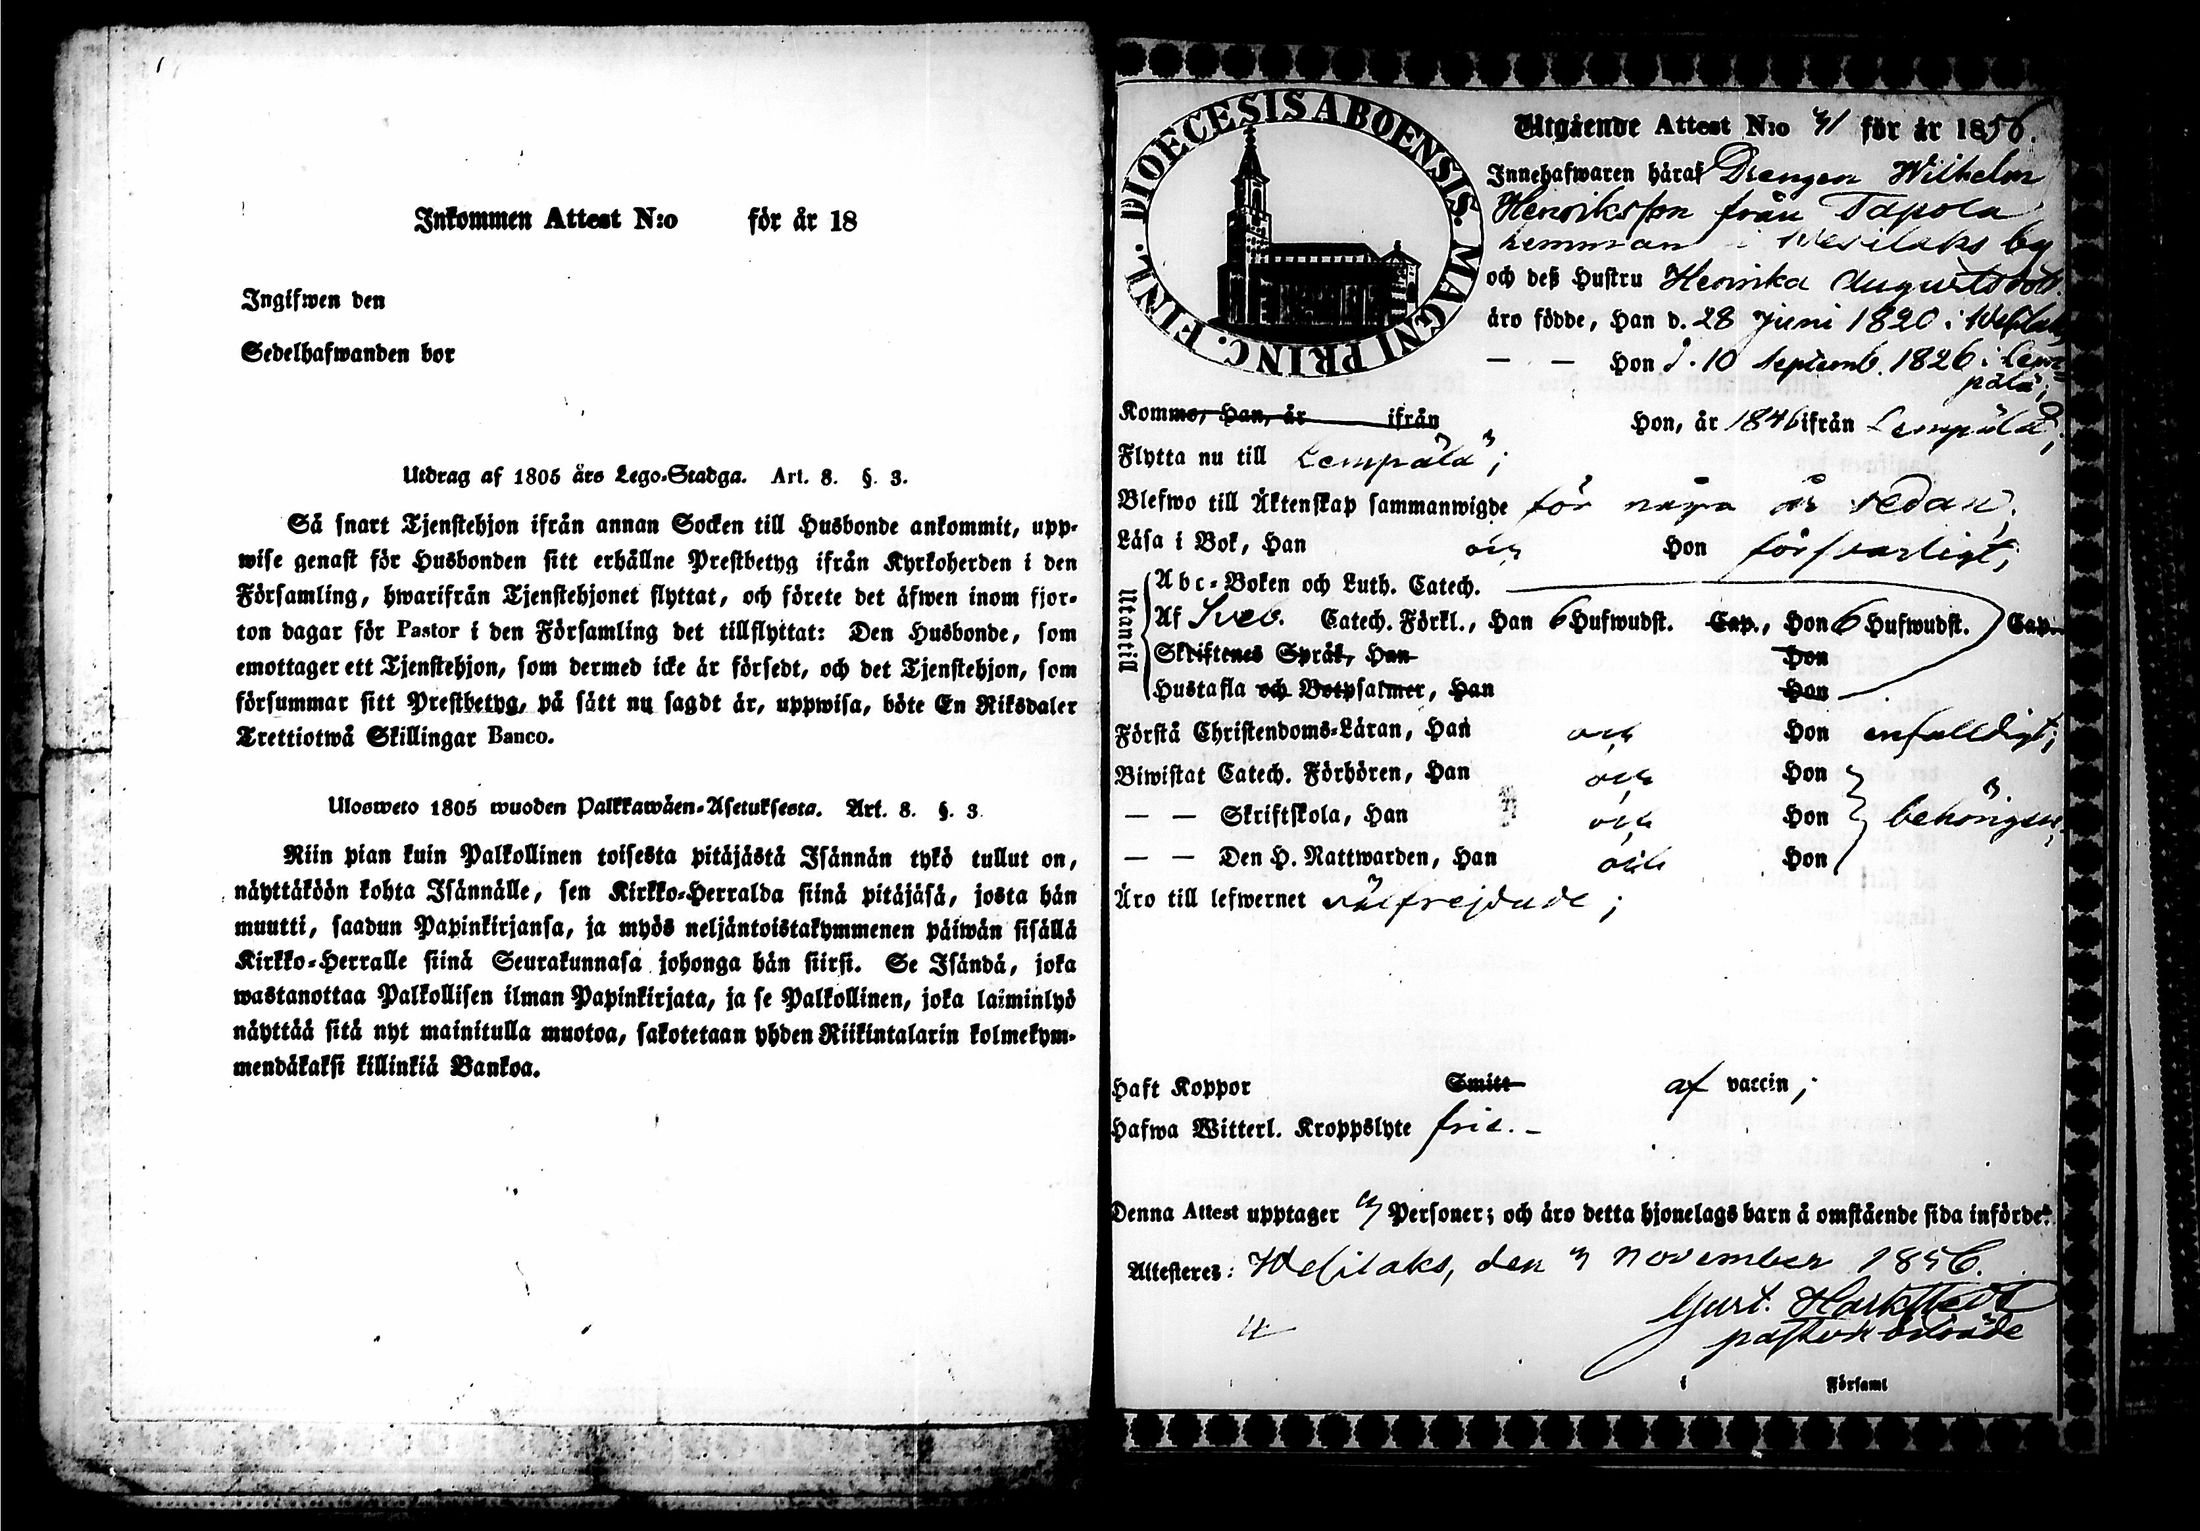 Inkommen Attest N:o för år 18
Ingifwen den
Sedelhafwanden bor
Utdrag af 1805 års Lego-Stadga. Art. 8. §. 3.
Så snart Tjenstehjon ifrån annan Socken till Husbonde ankommit, upp-
wise genast för Husbonden sitt erhållne Prestbetyg ifrån Kyrkoherden i den
Församling, hwarifrån Tjenstehjonet flyttat, och förete det äfwen inom fjor-
ton dagar för Pastor i den Församling det tillflyttat: Den Husbonde, som
emottager ett Tjenstehjon, som dermed icke är försedt, och det Tjenstehjon, som
försummar sitt Prestbetyg, på sätt nu sagdt är, uppwisa, böte En Riksdaler
Trettiotwå Skillingar Banco.
Ulosweto 1805 wuoden Palkkawäen-Asetuksesta. Art. 8. §. 3.
Niin pian kuin Palkollinen toisesta pitäjästä Isännän tykö tullut on,
näyttäköön kohta Isännälle, sen Kirkko-Herralda siinä pitäjäsä, josta hän
muutti, saadun Papinkirjansa, ja myös neljäntoistakymmenen päiwän sisällä
Kirkko-Herralle siinä Seurakunnasa johonga hän siirsi. Se Isändä, joka
wastanottaa Palkollisen ilman Papinkirjata, ja se Palkollinen, joka laiminlyö
näyttää sitä nyt mainitulla muotoa, sakotetaan yhden Riikintalarin kolmekym-
mendäkaksi killinkiä Bankoa.
DIOECESIS ABOENSIS. MAGNI PRINC. FINL.
Utgående Attest N:o 41 för år 1856.
Innehafwaren häraf Drengen Wilhelm
Henriksson från Tapola
Lemman i Wesilaks by
och deß Hustru Henrika Augustsdotr.
äro födde, Han d. 28 juni 1820 i Wesilaks,
— — Hon d. 10 septemb. 1826 i Lem-
pälä;
Kommo, Han, år ifrån Hon, år 1846 ifrån Lempälä;
Flytta nu till Lempälä;
Blefwo till Äktenskap sammanwigde för några år sedan;
Läsa i Bok, Han och Hon försvarligt;
Utantill
Abc-Boken och Luth. Catech.
Af Sveb. Catech. Förkl., Han 6 Hufwudst. Cap., Hon 6 Hufwudst. Cap.
Skriftenes Språk, Han Hon
Hustafla och Botpsalmer, Han Hon
Förstå Christendoms-Läran, Han och Hon enfalldigt;
Biwistat Catech. Förhören, Han och Hon
— — Skriftskola, Han och Hon behörigen;
— — Den H. Nattwarden, Han och Hon
Äro till lefwernet välfrejdade;
Haft Koppor Smitt af vaccin;
Hafwa Witterl. Kroppslyte frie. –
Denna Attest upptager 3 Personer; och äro detta hjonelags barn å omstående sida införde.
Attesteres: Wesilaks, den 3 November 1856.
Gust. Harkstedt
4
i Församl